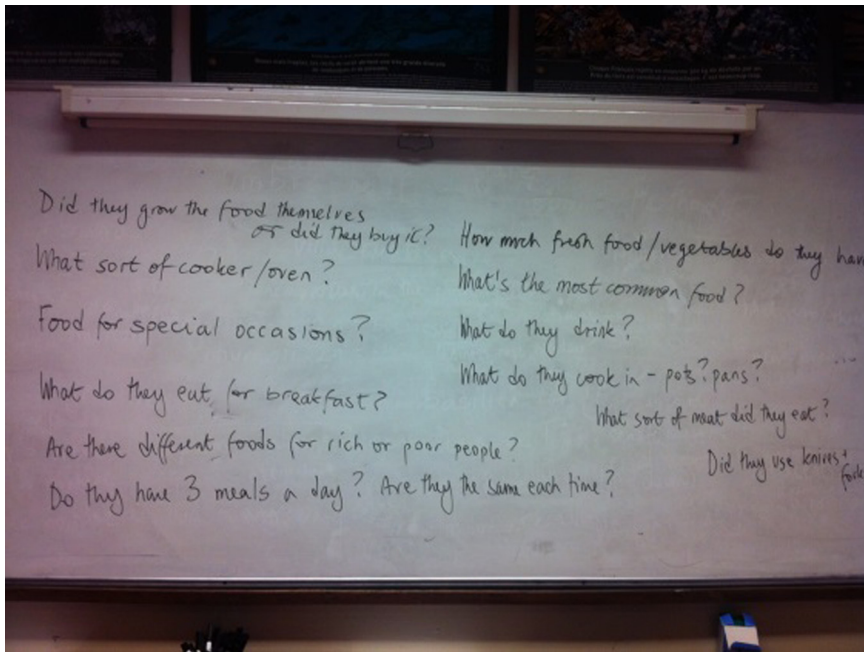 Did they grow the food themselves
or did they buy it?
What sort of cooker/oven?
Food for special occasions?
What do they eat for breakfast?
Are there different foods for rich or poor people?
Do they have 3 meals a day? Are they the same each time?
How much fresh food/vegetables do they hav
What's the most common food?
What do they drink?
What do they cook in - pots? pans?
What sort of meat did they eat?
Did they use knives +
fork